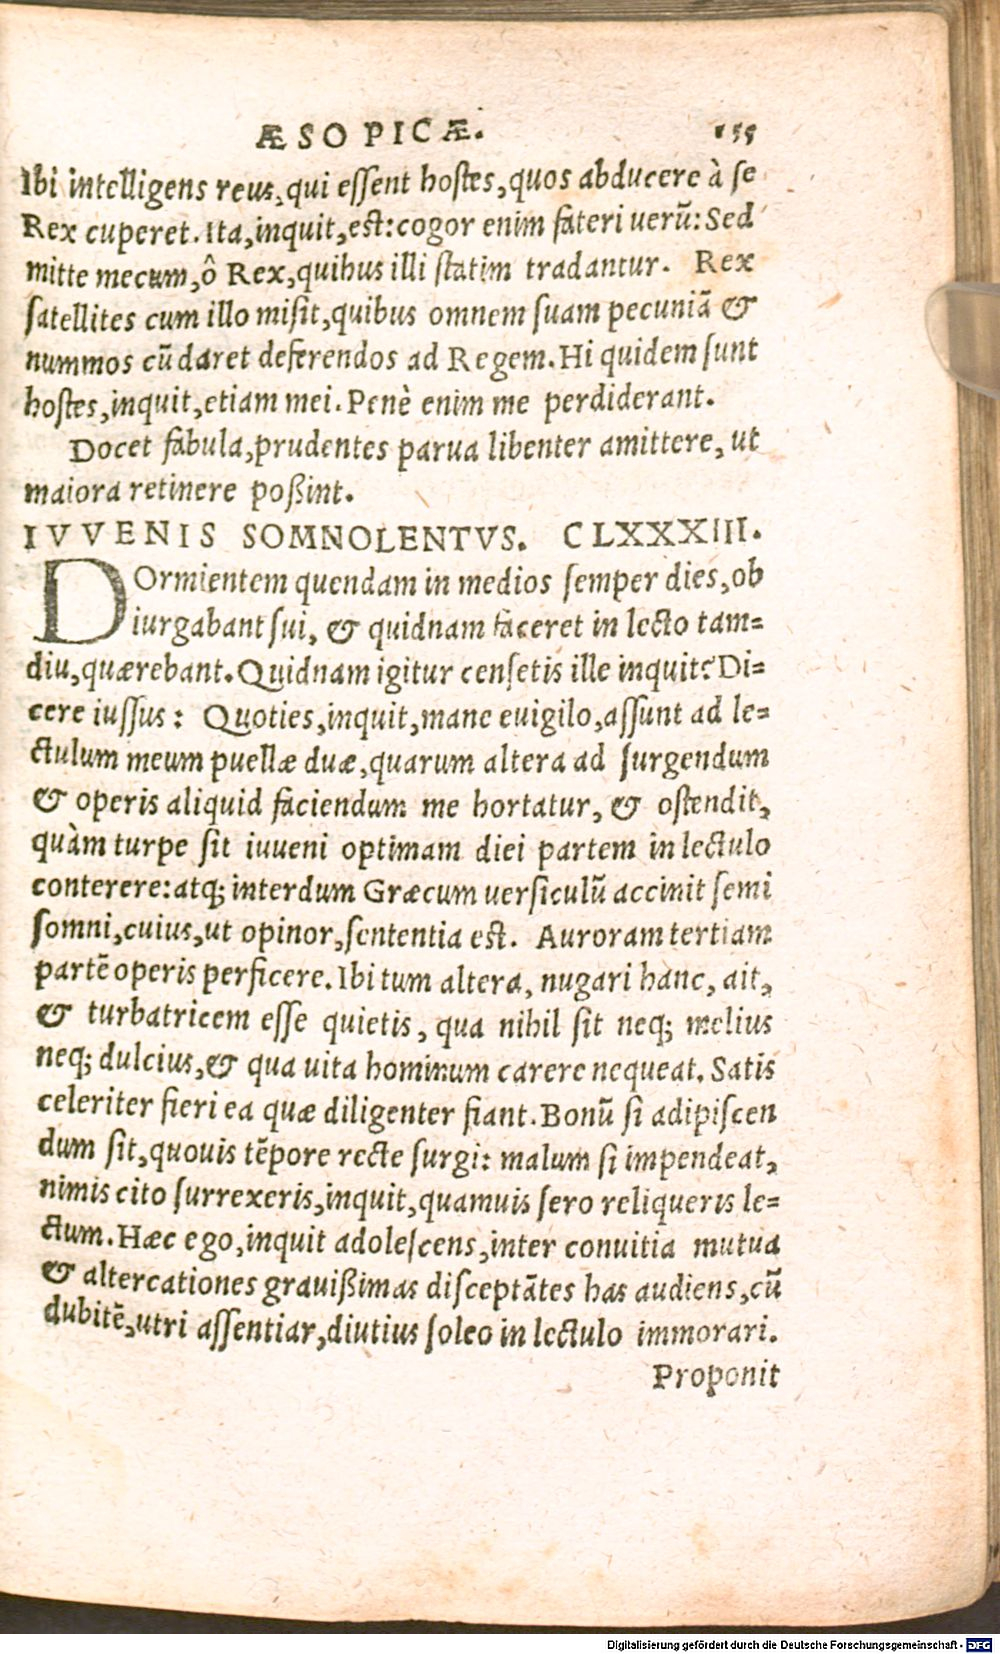 ÆSOPICÆ. 155
Ibi intelligens reus, qui essent hostes, quos abducere à se
Rex cuperet. Ita, inquit, est: cogor enim fateri uerũ: Sed
mitte mecum, ô Rex, quibus illi statim tradantur. Rex
satellites cum illo misit, quibus omnem suam pecuniã &
nummos cũ daret deferendos ad Regem. Hi quidem sunt
hostes, inquit, etiam mei. Penè enim me perdiderant.
Docet fabula, prudentes parua libenter amittere, ut
maiora retinere poßint.
IVVENIS SOMNOLENTVS. CLXXXIII.
DOrmientem quendam in medios semper dies, ob
iurgabant sui, & quidnam faceret in lecto tam=
diu, quærebant. Quidnam igitur censetis ille inquit? Di=
cere iussus: Quoties, inquit, mane euigilo, assunt ad le=
ctulum meum puellæ duæ, quarum altera ad surgendum
& operis aliquid faciendum me hortatur, & ostendit,
quàm turpe sit iuueni optimam diei partem in lectulo
conterere: atq; interdum Græcum uersiculũ accinit semi
somni, cuius, ut opinor, sententia est. Auroram tertiam
partẽ operis perficere. Ibi tum altera, nugari hanc, ait,
& turbatricem esse quietis, qua nihil sit neq; melius
neq; dulcius, & qua uita hominum carere nequeat. Satis
celeriter fieri ea quæ diligenter fiant. Bonũ si adipiscen
dum sit, quouis tẽpore recte surgi: malum si impendeat,
nimis cito surrexeris, inquit, quamuis sero reliqueris le=
ctum. Hæc ego, inquit adolescens, inter conuitia mutua
& altercationes grauißimas disceptãtes has audiens, cũ
dubitẽ, utri assentiar, diutius soleo in lectulo immorari.
Proponit
Digitalisierung gefördert durch die Deutsche Forschungsgemeinschaft - DFG